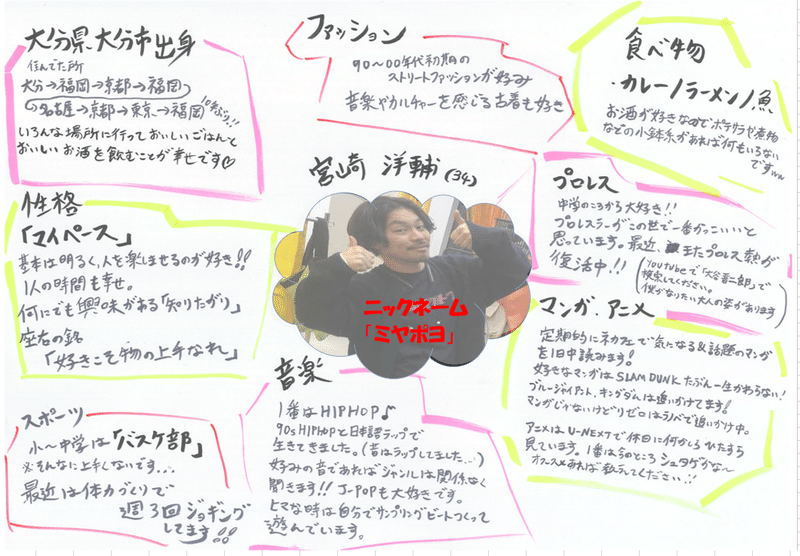 大分県大分市出身
住んでた所
大分→福岡→京都→福岡
→名古屋→京都→東京→福岡 10年ぶり!!
いろんな場所に行っておいしいごはんと
おいしいお酒を飲むことが幸せです♡
ファッション
90〜00年代初期の
ストリートファッションが好み
音楽やカルチャーを感じる古着も好き
食べ物
・カレー/ラーメン/魚
お酒が好きなのでポテサラや煮物
などの小鉢系があれば何もいらない
ですww
宮崎 洋輔(34)
ニックネーム
「ミヤポヨ」
性格
「マイペース」
基本は明るく、人を楽しませるのが好き!!
1人の時間も幸せ。
何にでも興味がある「知りたがり」
座右の銘
「好きこそ物の上手なれ」
プロレス
中学のころから大好き!!
プロレスラーがこの世で一番かっこいいと
思っています。最近、またプロレス熱が
復活中!!
(YouTubeで「大谷晋二郎」で
検索してください。
僕がなりたい大人の姿があります)
マンガ、アニメ
定期的にネカフェで気になる&話題のマンガ
を1日中読みます!
好きなマンガはSLAM DUNK たぶん一生かわらない!
ブルージャイアント、キングダムは追いかけてます!
マンガじゃないけどリゼロはラノベで追いかけ中。
アニメはU-NEXTで休日に何かしらひたすら
見ています。1番は今のところシュタゲかな〜
オススメあれば教えてください!!
スポーツ
小〜中学は「バスケ部」
※そんなに上手くないです...
最近は体力づくりで
週3回ジョギング
してます!!
音楽
1番はHIPHOP♪
90s HIPHOPと日本語ラップで
生きてきました。(昔はラップしてました...)
好みの音であればジャンルは関係なく
聞きます!! J-POPも大好きです。
ヒマな時は自分でサンプリングビートつくって
遊んでいます。